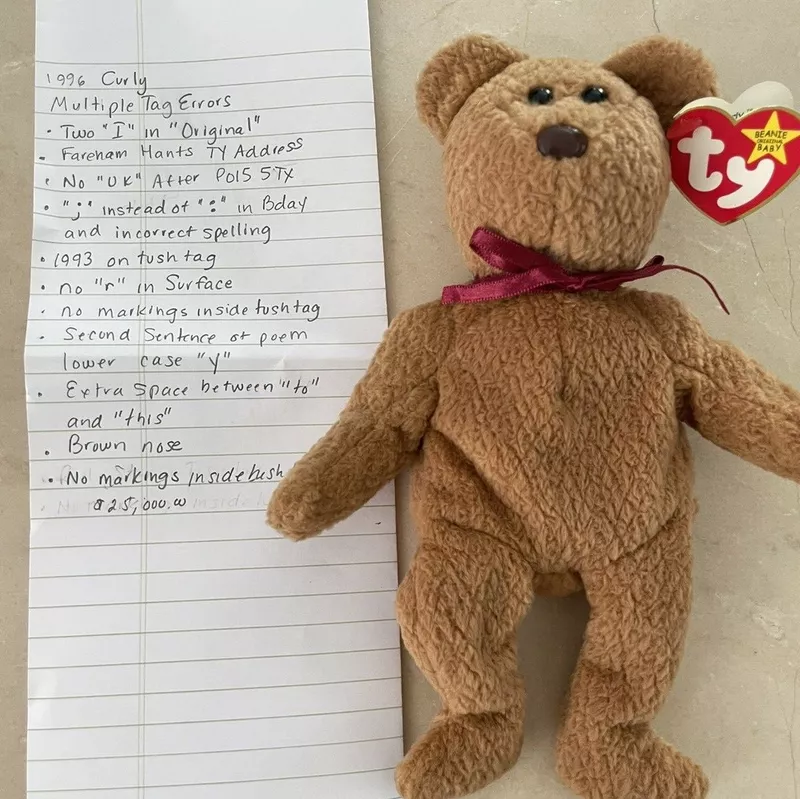 1996 Curly
Multiple Tag Errors
• Two "I" in "Original"
• Fareham Hants TY Address
• No "UK" After PO15 5TX
• ";" instead of ":" in Bday
and incorrect spelling
• 1993 on tush tag
• no "r" in Surface
• no markings inside tush tag
• Second Sentence of poem
lower case "y"
• Extra Space between "to"
and "this"
• Brown nose
• No markings inside tush
$25,000.00
BEANIE
ORIGINAL
BABY
ty